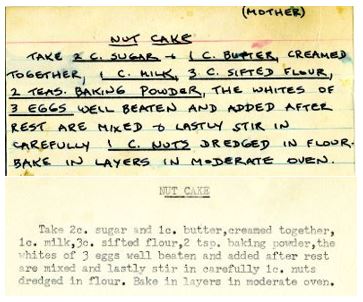 (MOTHER)
NUT CAKE
TAKE 2 C. SUGAR & 1 C. BUTTER, CREAMED
TOGETHER, 1 C. MILK, 3 C. SIFTED FLOUR,
2 TEAS. BAKING POWDER, THE WHITES OF
3 EGGS WELL BEATEN AND ADDED AFTER
REST ARE MIXED & LASTLY STIR IN
CAREFULLY 1 C. NUTS DREDGED IN FLOUR.
BAKE IN LAYERS IN MODERATE OVEN.
NUT CAKE
Take 2c. sugar and 1c. butter,creamed together,
1c. milk,3c. sifted flour,2 tsp. baking powder,the
whites of 3 eggs well beaten and added after rest
are mixed and lastly stir in carefully 1c. nuts
dredged in flour. Bake in layers in moderate oven.